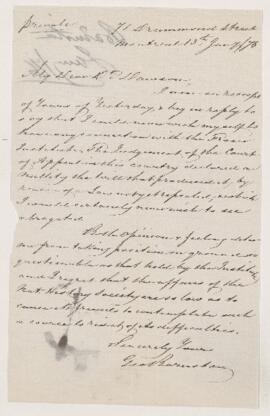 Private
71 Drummond Street
Montreal 13th Jany /78
My Dear Dr Dawson,
I am in receipt
of Yours of Yesterday, & beg in reply to
say that I could never wish myself to
have any connection with the Fraser
Institute. The Judgement of the Court
of Appeal in this country declared a
nullity the will that produced it, by
Law not yet repealed, which
I would certainly never wish to see
abrogated.
Both Opinion & feeling deter
me from taking position on ground so
questionable as that held by the Institute
and I regret that the affairs of the
Nat. History Society are so low as to
cause its friends to contemplate such
a course to rid it of its difficulties.
Sincerely Yours
Geo Barnston